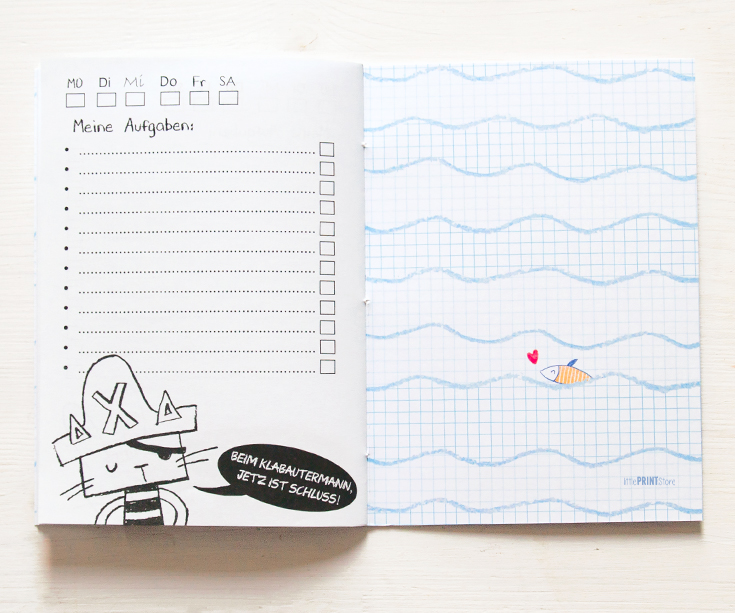 MO Di Mi Do Fr SA
Meine Aufgaben:
BEIM KLABAUTERMANN,
JETZ IST SCHLUSS!
littlePRINTStore